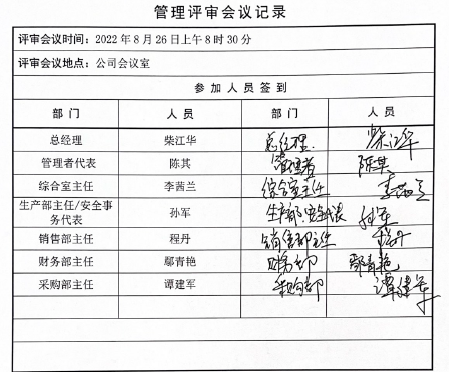 管理评审会议记录
评审会议时间：2022年8月26日上午8时30分
评审会议地点：公司会议室
参加人员签到
部门 人员 部门 人员
总经理 柴江华 总经理 柴江华
管理者代表 陈其 管理者 陈其
综合室主任 李茜兰 综合室主任 李茜兰
生产部主任/安全事 生产部 安全代表
务代表 孙军 孙军
销售部主任 程丹 销售部主任 程丹
财务部主任 鄢青艳 财务部 鄢青艳
采购部主任 谭建军 采购部 谭建军